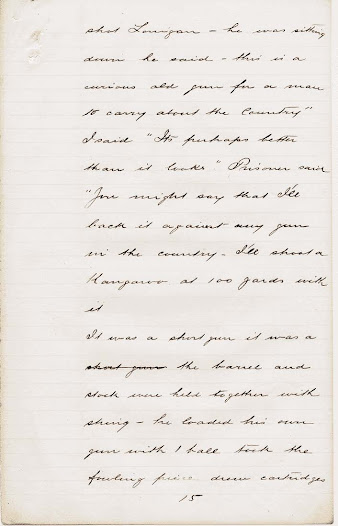 shot Lonigan - he was sitting
down he said - this is a
curious old gun for a man
to carry about the Country"
I said "Its perhaps better
than it looks" Prisoner said
"You might say that I'll
back it against any gun
in the country - I'll shoot a
Kangaroo at 100 yards with
it
It was a short gun it was a
short gun the barrel and
stock were held together with
string - he loaded his own
gun with 1 ball took the
fowling piece drew cartridges
15